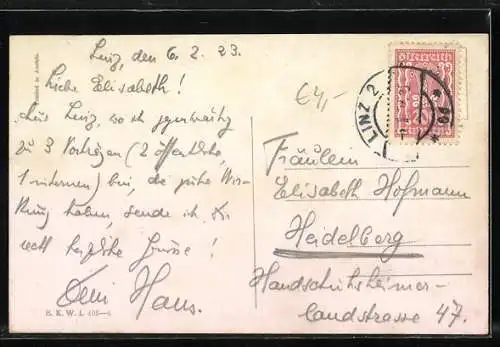 Linz, den 6. 2. 23.
Liebe Elisabeth!
Aus Linz, wo ich gegenwärtig
zu 3 Vorträgen (2 öffentliche,
1 internen) bin, die gute Wir-
kung haben, sende ich Dir
recht herzliche Grüsse!
Dein Hans.
B. K. W. I.
€4,-
LINZ 2
Österreich
Fräulein
Elisabeth Hofmann
Heidelberg
Handschuhsheimer-
landstrasse 47.